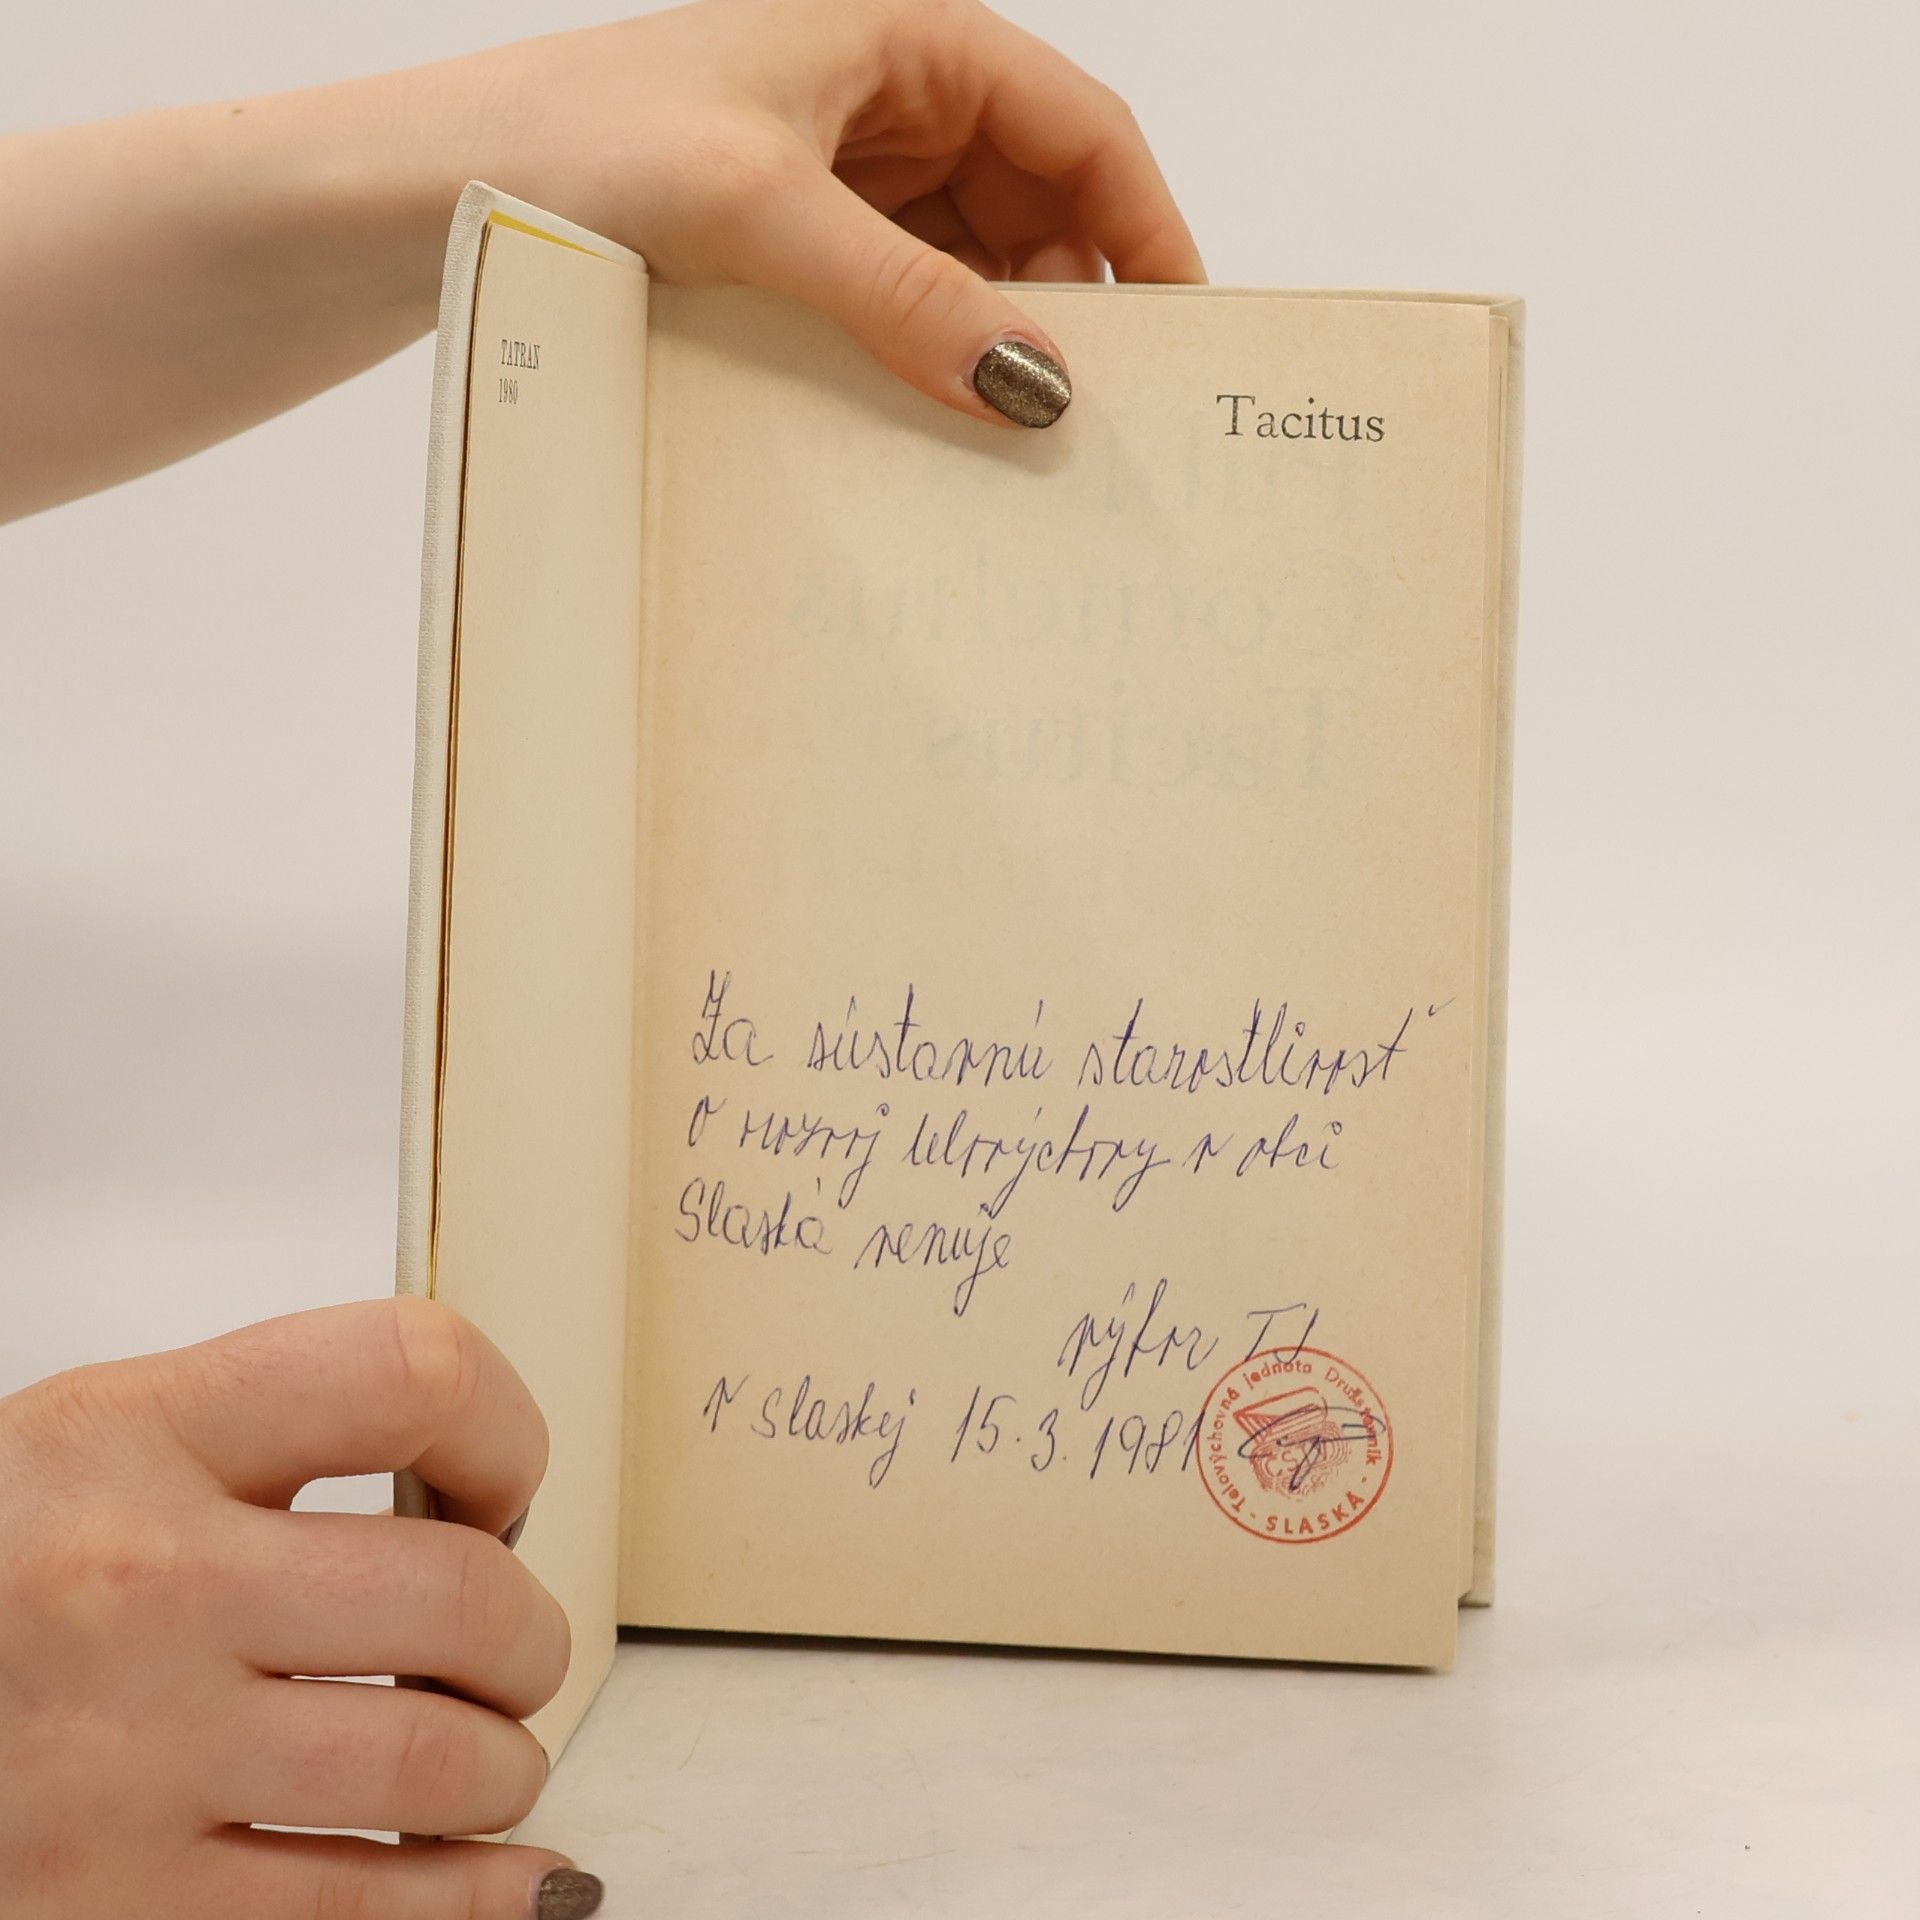 TATRAN
1980
Tacitus
Publius
Cornelius
Tacitus
Za sústavnú starostlivosť
o rozvoj telovýchovy v obci
Slaská venuje
výbor TJ
v Slaskej 15.3.1981
Telovýchovná jednota Družstevník
- SLASKÁ -